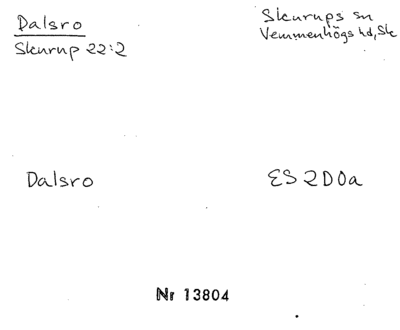 Dalsro
Skurup 22:2
Skurups sn
Vemmenhögs hd, Sk
Dalsro
ES 2D0a
Nr 13804